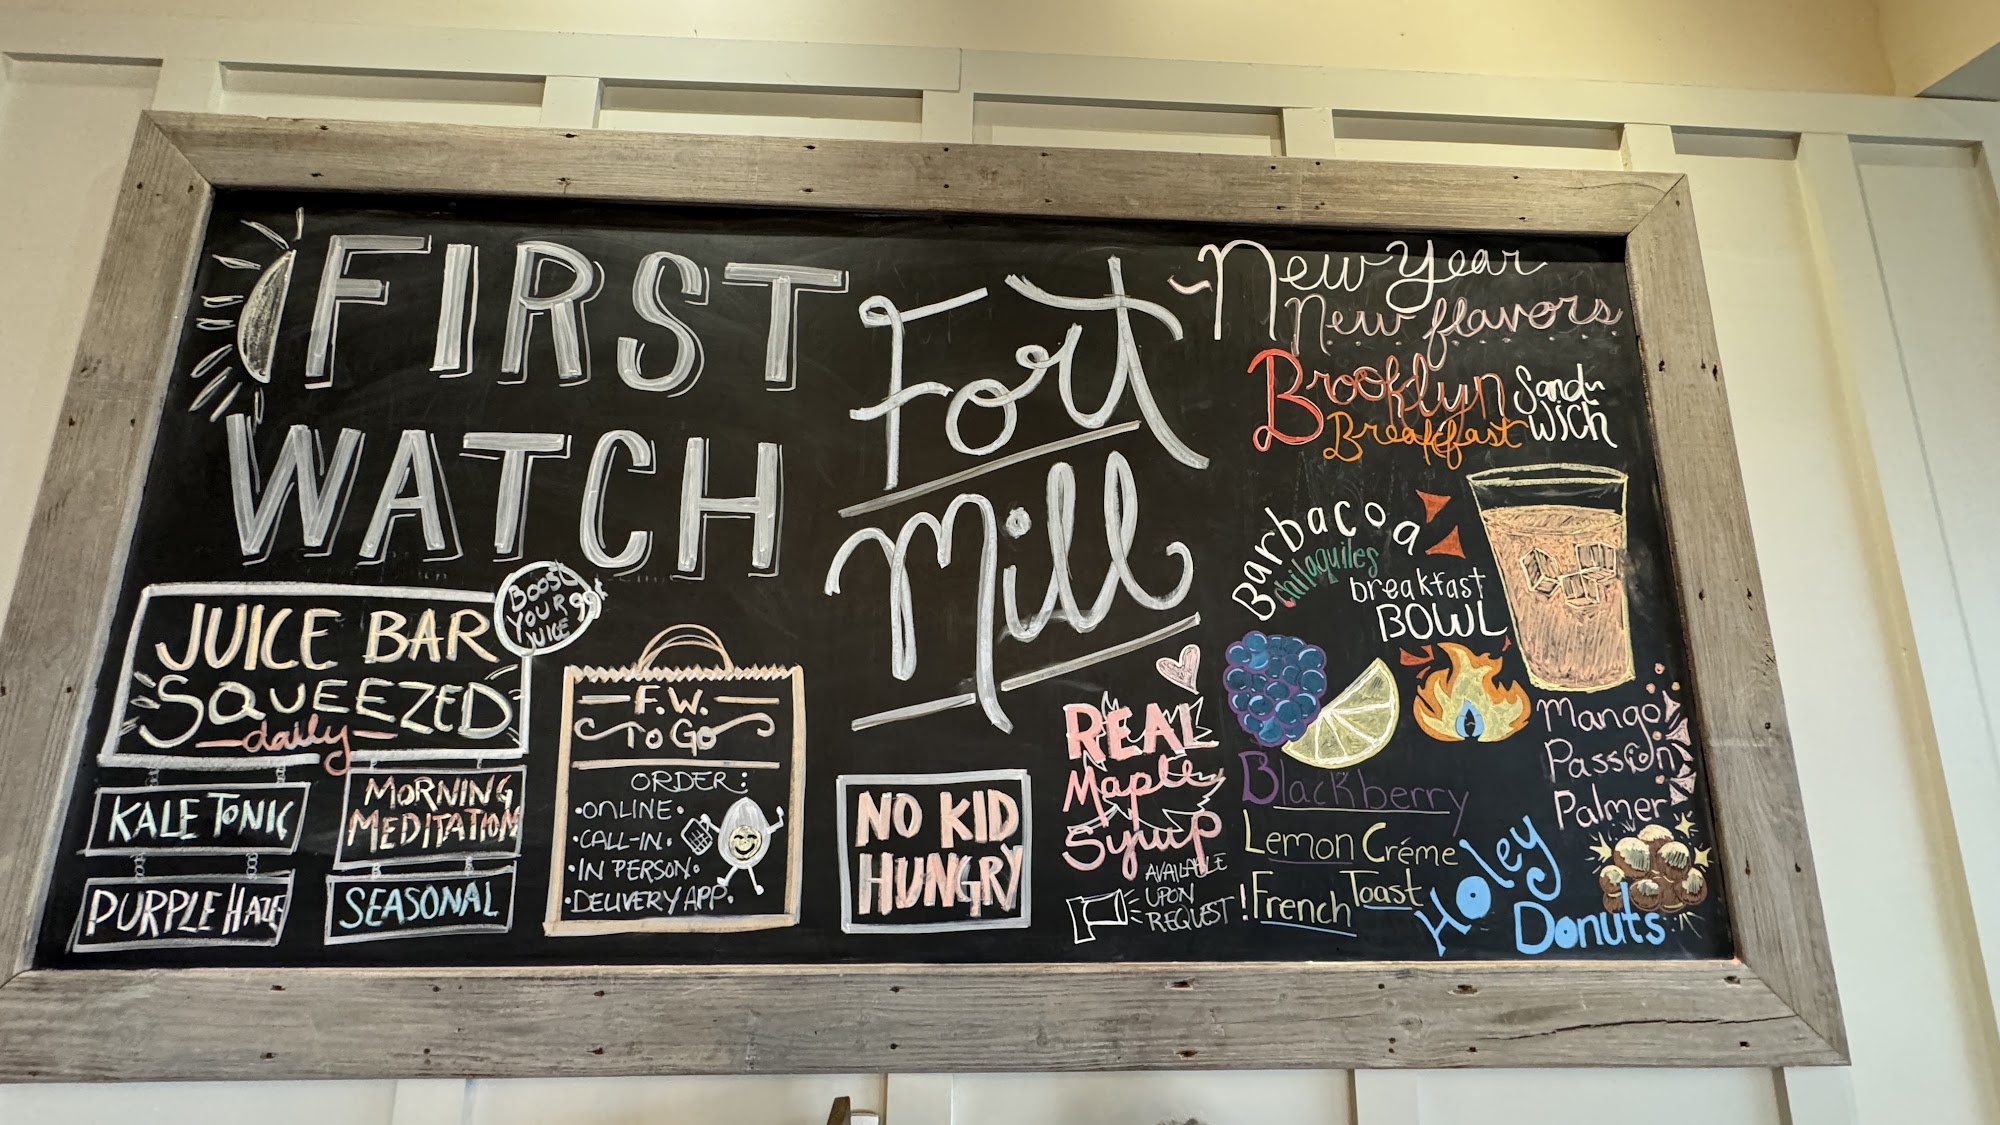 FIRST
WATCH
Fort
Mill
JUICE BAR
SQUEEZED
daily
BOOST
YOUR
JUICE 99¢
KALE TONIC
MORNING
MEDITATION
PURPLE HAZE
SEASONAL
F.W.
To Go
ORDER:
•ONLINE•
•CALL-IN•
•IN PERSON•
•DELIVERY APP•
NO KID
HUNGRY
REAL
Maple
Syrup
AVAILABLE
UPON
REQUEST!
New Year
New flavors
Brooklyn
Breakfast
Sand-
wich
Barbacoa
chilaquiles
breakfast
BOWL
Blackberry
Lemon Créme
French Toast
Mango
Passion
Palmer
Holey
Donuts